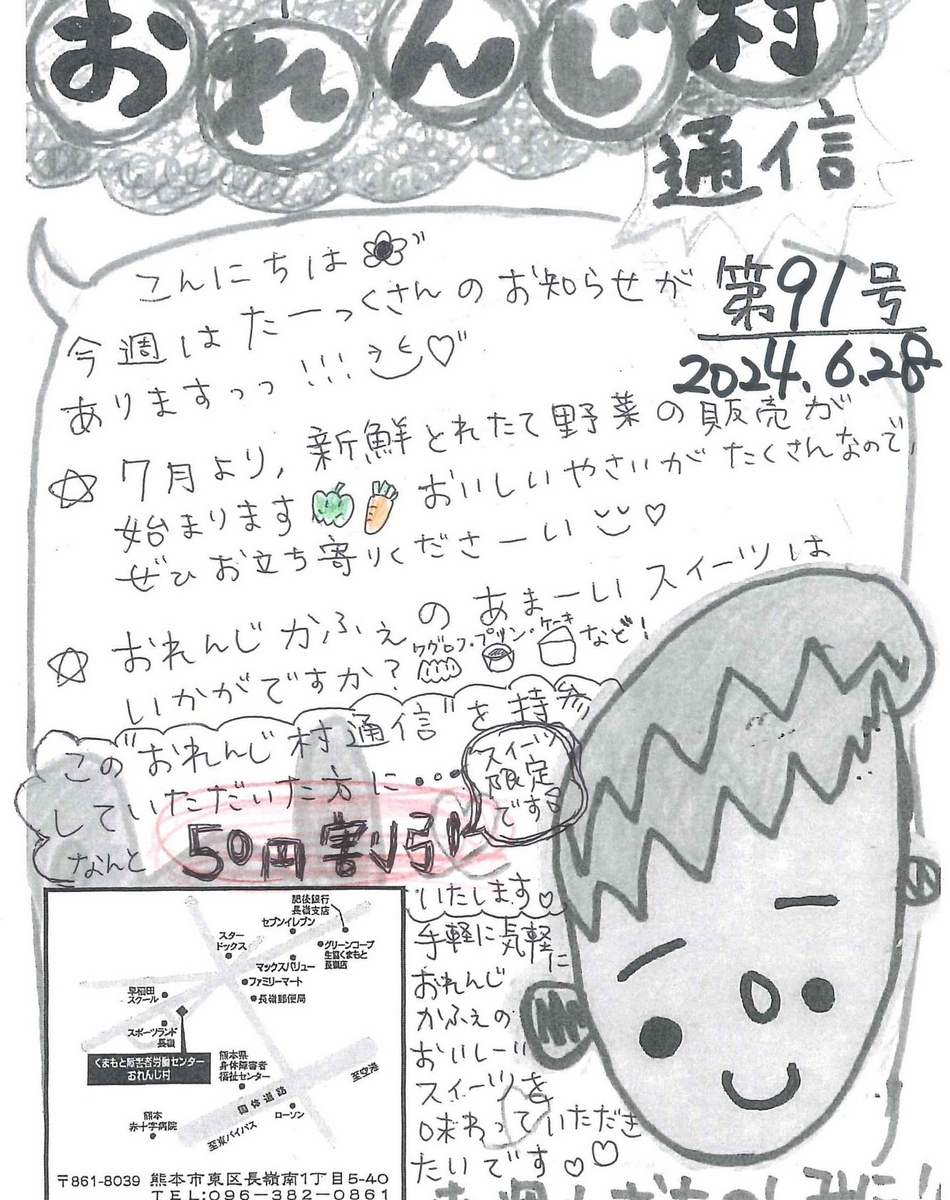 おれんじ村
通信
第91号
2024.6.28
こんにちは
今週はたーっくさんのお知らせが
ありますっっ!!!
☆7月より,新鮮とれたて野菜の販売が
始まります おいしいやさいがたくさんなので,
ぜひお立ち寄りくださーい
☆おれんじかふぇのあまーいスイーツは
いかがですか?クグロフ・プリン・ケーキなど!
この"おれんじ村通信"を持参
していただいた方に・・・
スイーツ
限定
です
なんと 50円割引
いたします♡
手軽に気軽に
おれんじ
かふぇの
おいしーい
スイーツを
味わっていただき
たいです♡♡
肥後銀行
長嶺支店
セブンイレブン
スター
ドックス
グリーンコープ
生協くまもと
長嶺店
マックスバリュー
ファミリーマート
早稲田
スクール
長嶺郵便局
スポーツランド
長嶺
くまもと障害者労働センター
おれんじ村
熊本県
身体障害者
福祉センター
至空港
国体道路
ローソン
熊本
赤十字病院
至東バイパス
〒861-8039 熊本市東区長嶺南1丁目5-40
TEL:096-382-0861